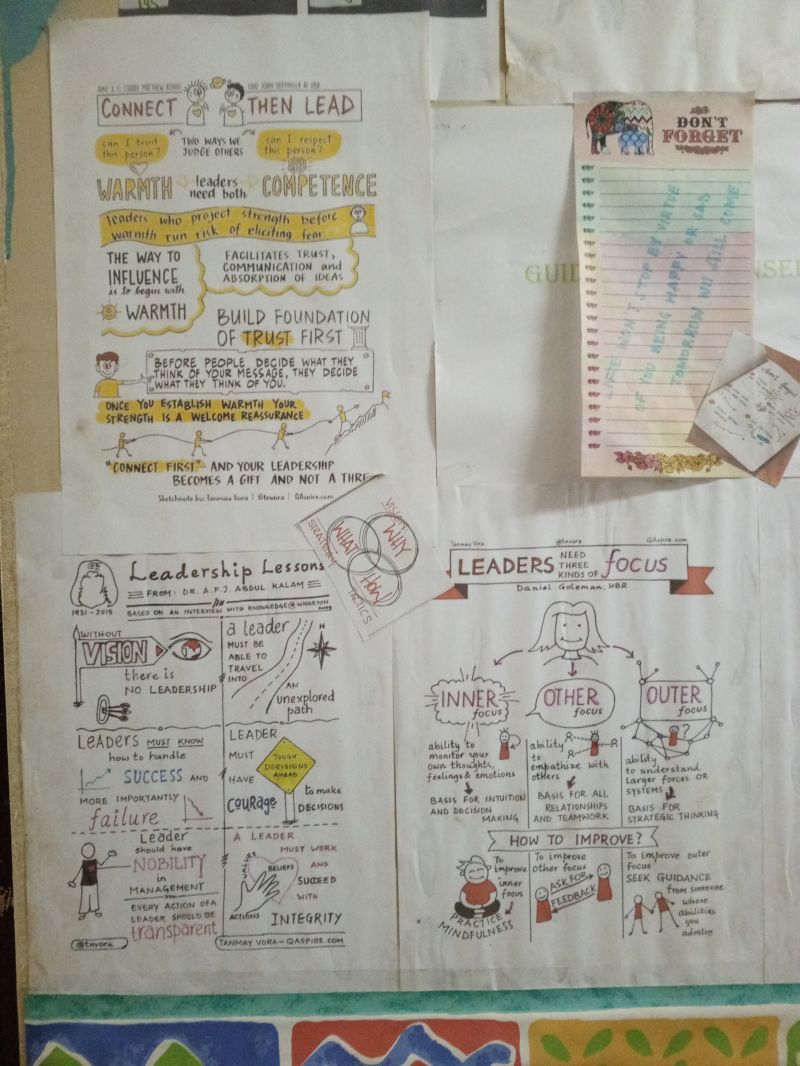 AMY J. C. CUDDY, MATTHEW KOHUT AND JOHN NEFFINGER
CONNECT THEN LEAD
can I trust this person?
TWO WAYS WE JUDGE OTHERS
can I respect this person?
WARMTH leaders need both COMPETENCE
leaders who project strength before
warmth run risk of eliciting fear
THE WAY TO
INFLUENCE
is to begin with
WARMTH
FACILITATES TRUST,
COMMUNICATION and
ABSORPTION OF IDEAS
BUILD FOUNDATION
OF TRUST FIRST
BEFORE PEOPLE DECIDE WHAT THEY
THINK OF YOUR MESSAGE, THEY DECIDE
WHAT THEY THINK OF YOU.
ONCE YOU ESTABLISH WARMTH YOUR
STRENGTH IS A WELCOME REASSURANCE
"CONNECT FIRST" AND YOUR LEADERSHIP
BECOMES A GIFT AND NOT A THRE
Sketchnote by: Tanmay Vora | @tnvora | QAspire.com
DON'T
FORGET
LIFE WON'T STOP BY VIRTUE
OF YOU BEING HAPPY OR SAD
TOMORROW WILL STILL COME
GUID
NSEL
VISION
WHY
STRATEGY
WHAT
HOW
TACTICS
Leadership Lessons
FROM: DR. A.P.J. ABDUL KALAM
1931-2015
BASED ON AN INTERVIEW WITH KNOWLEDGE@WHARTON
WITHOUT
VISION
there is
NO LEADERSHIP
a leader
MUST BE
ABLE TO
TRAVEL
INTO
AN
unexplored
path
N
Leaders MUST KNOW
how to handle
SUCCESS AND
MORE IMPORTANTLY
failure
LEADER
MUST
HAVE
Courage
TOUGH
DECISIONS
AHEAD
to make
DECISIONS
Leader
should have
NOBILITY
in
MANAGEMENT
EVERY ACTION OF A
LEADER SHOULD BE
transparent
A LEADER
MUST WORK
AND
SUCCEED
WITH
INTEGRITY
VALUES
BELIEFS
ACTIONS
@tnvora
TANMAY VORA - QASPIRE.COM
Tanmay Vora @tnvora QAspire.com
LEADERS NEED THREE KINDS OF focus
Daniel Goleman, HBR
INNER
focus
OTHER
focus
OUTER
focus
ability to
monitor your
own thoughts,
feelings & emotions
BASIS FOR INTUITION
AND DECISION
MAKING
ability
to
empathize with
others
BASIS FOR ALL
RELATIONSHIPS
AND TEAMWORK
?
ability
to understand
larger forces or
SYSTEMS
BASIS FOR
STRATEGIC THINKING
HOW TO IMPROVE?
To
improve
inner
focus
PRACTICE
MINDFULNESS
To improve
other focus
ASK FOR
FEEDBACK
To improve outer
focus
SEEK GUIDANCE
from someone
whose
abilities
you
admire